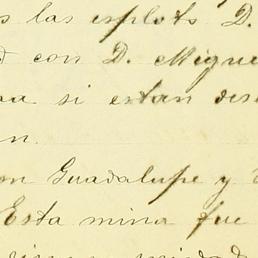 s las esplots D.
con D. Migue
si estan des
n.
n Guadalupe y
Esta mina fue